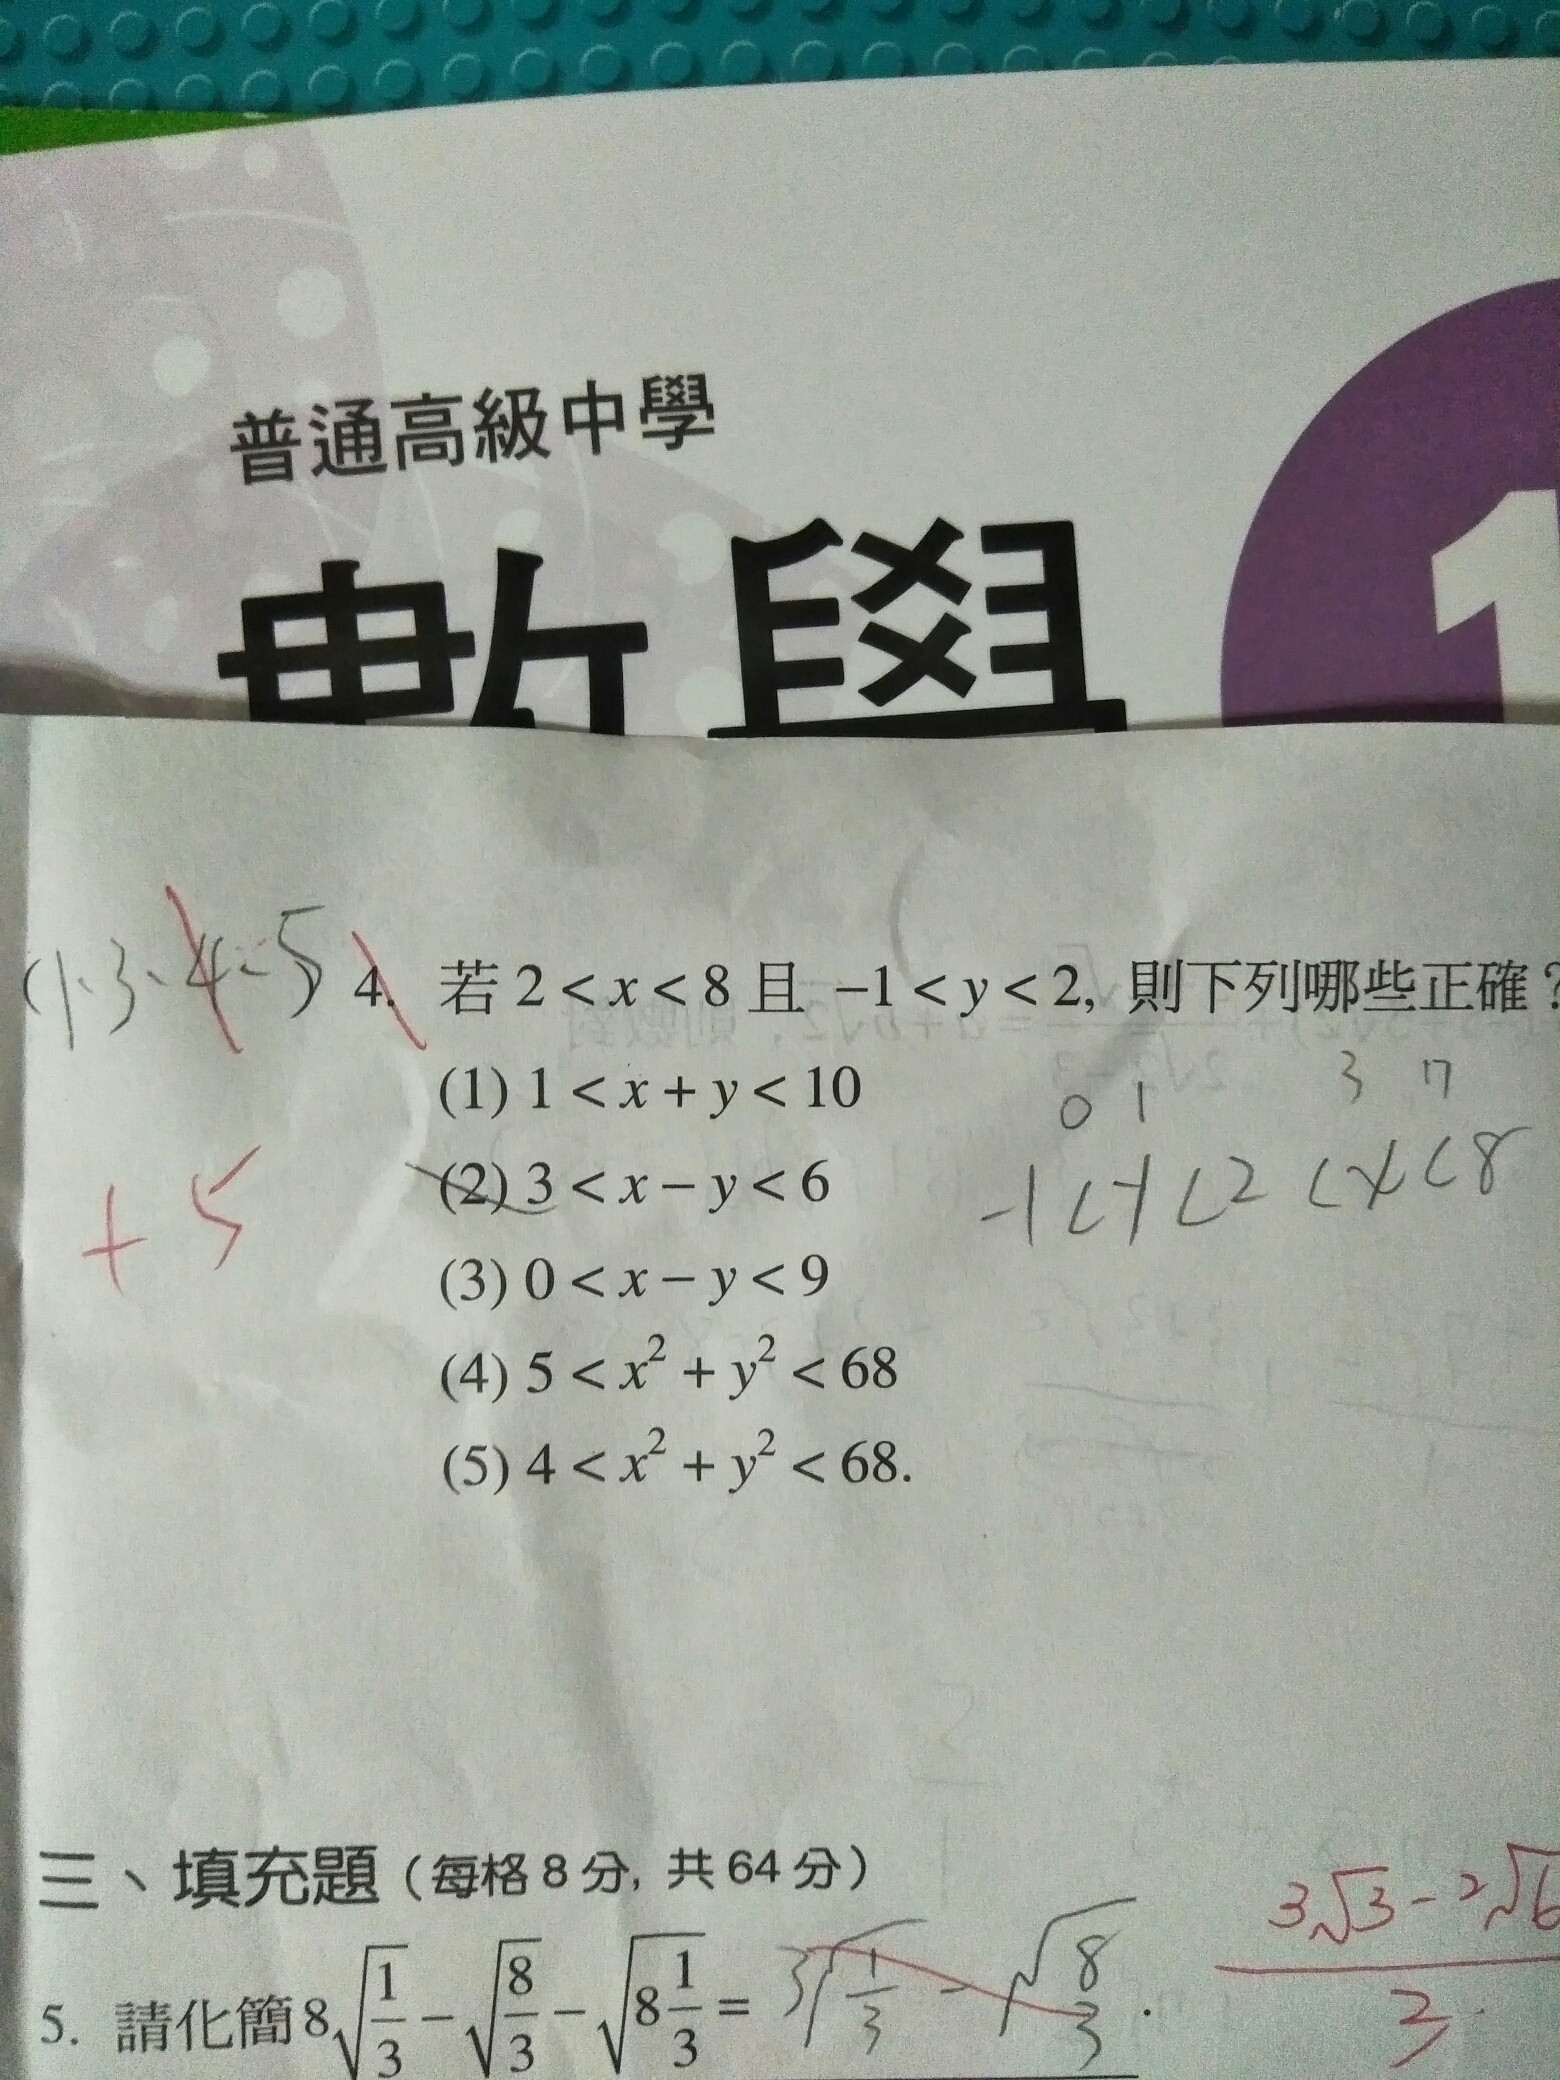 普通高級中學
數學 1
(1、3、4、5) 4. 若 2 < x < 8 且 −1 < y < 2, 則下列哪些正確？
(1) 1 < x + y < 10
0 1 3 7
(2) 3 < x − y < 6
-1 < y < 2 < x < 8
+5
(3) 0 < x − y < 9
(4) 5 < x² + y² < 68
(5) 4 < x² + y² < 68.
三、填充題（每格 8 分, 共 64 分）
5. 請化簡 8√(1/3) − √(8/3) − √(8 1/3) = 3√(1/3) - √(8/3) .
(3√3 - 2√6)/3